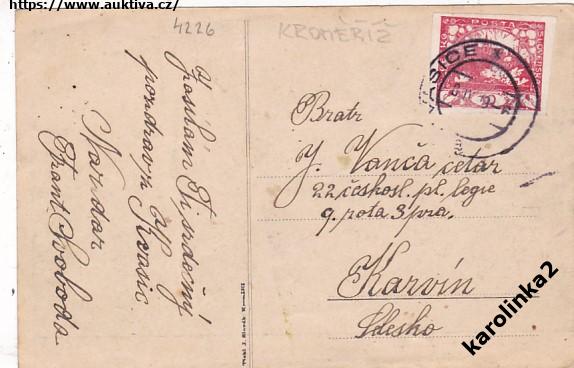 https://www.auktiva.cz/
4226
KROMĚŘÍŽ
POSTA
Posílám Ti srdečný
pozdrav z
Kvasic
Nazdar
Frant Svoboda
Bratr
J. Vanča četař
22 českosl. pl. legie
9. rota 3 pra.
Karvín
Slesko
karolinka2